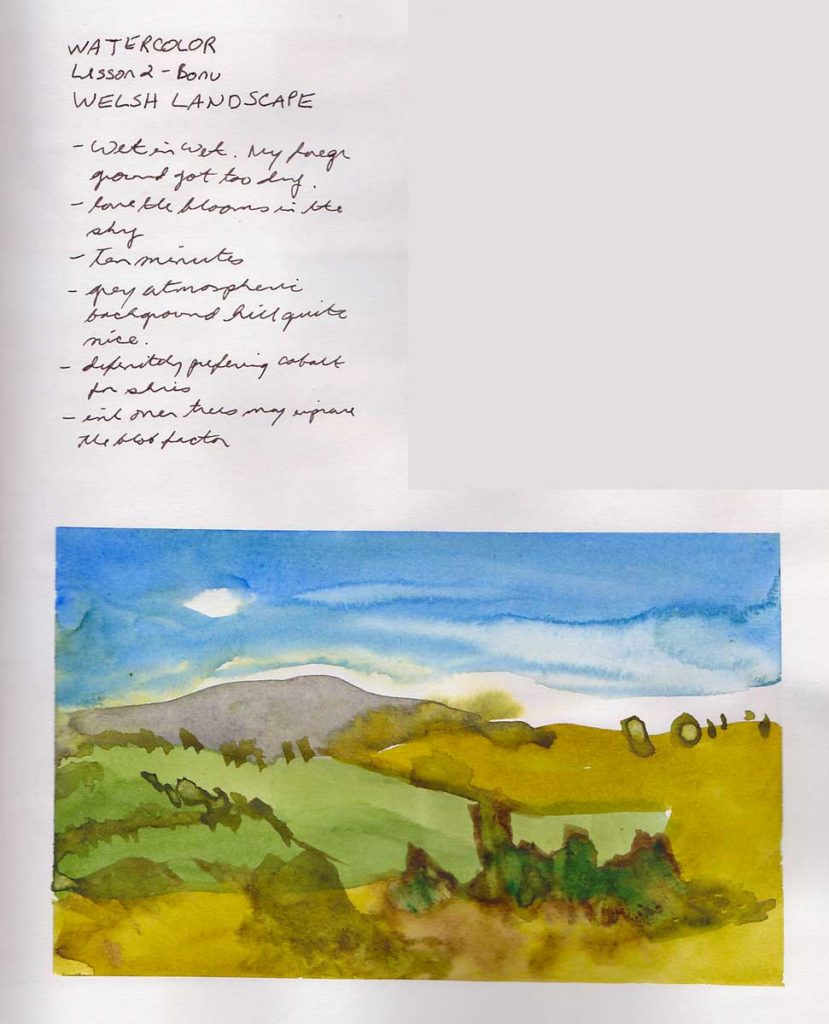 WATERCOLOR
Lesson 2 - Bonu
WELSH LANDSCAPE
- Wet in Wet. My foregr
ground got too dry.
- love the blooms in the
sky
- Ten minutes
- grey atmospheric
background hill quite
nice.
- definitely prefering cobalt
for skies
- ink over trees may improve
the blob factor